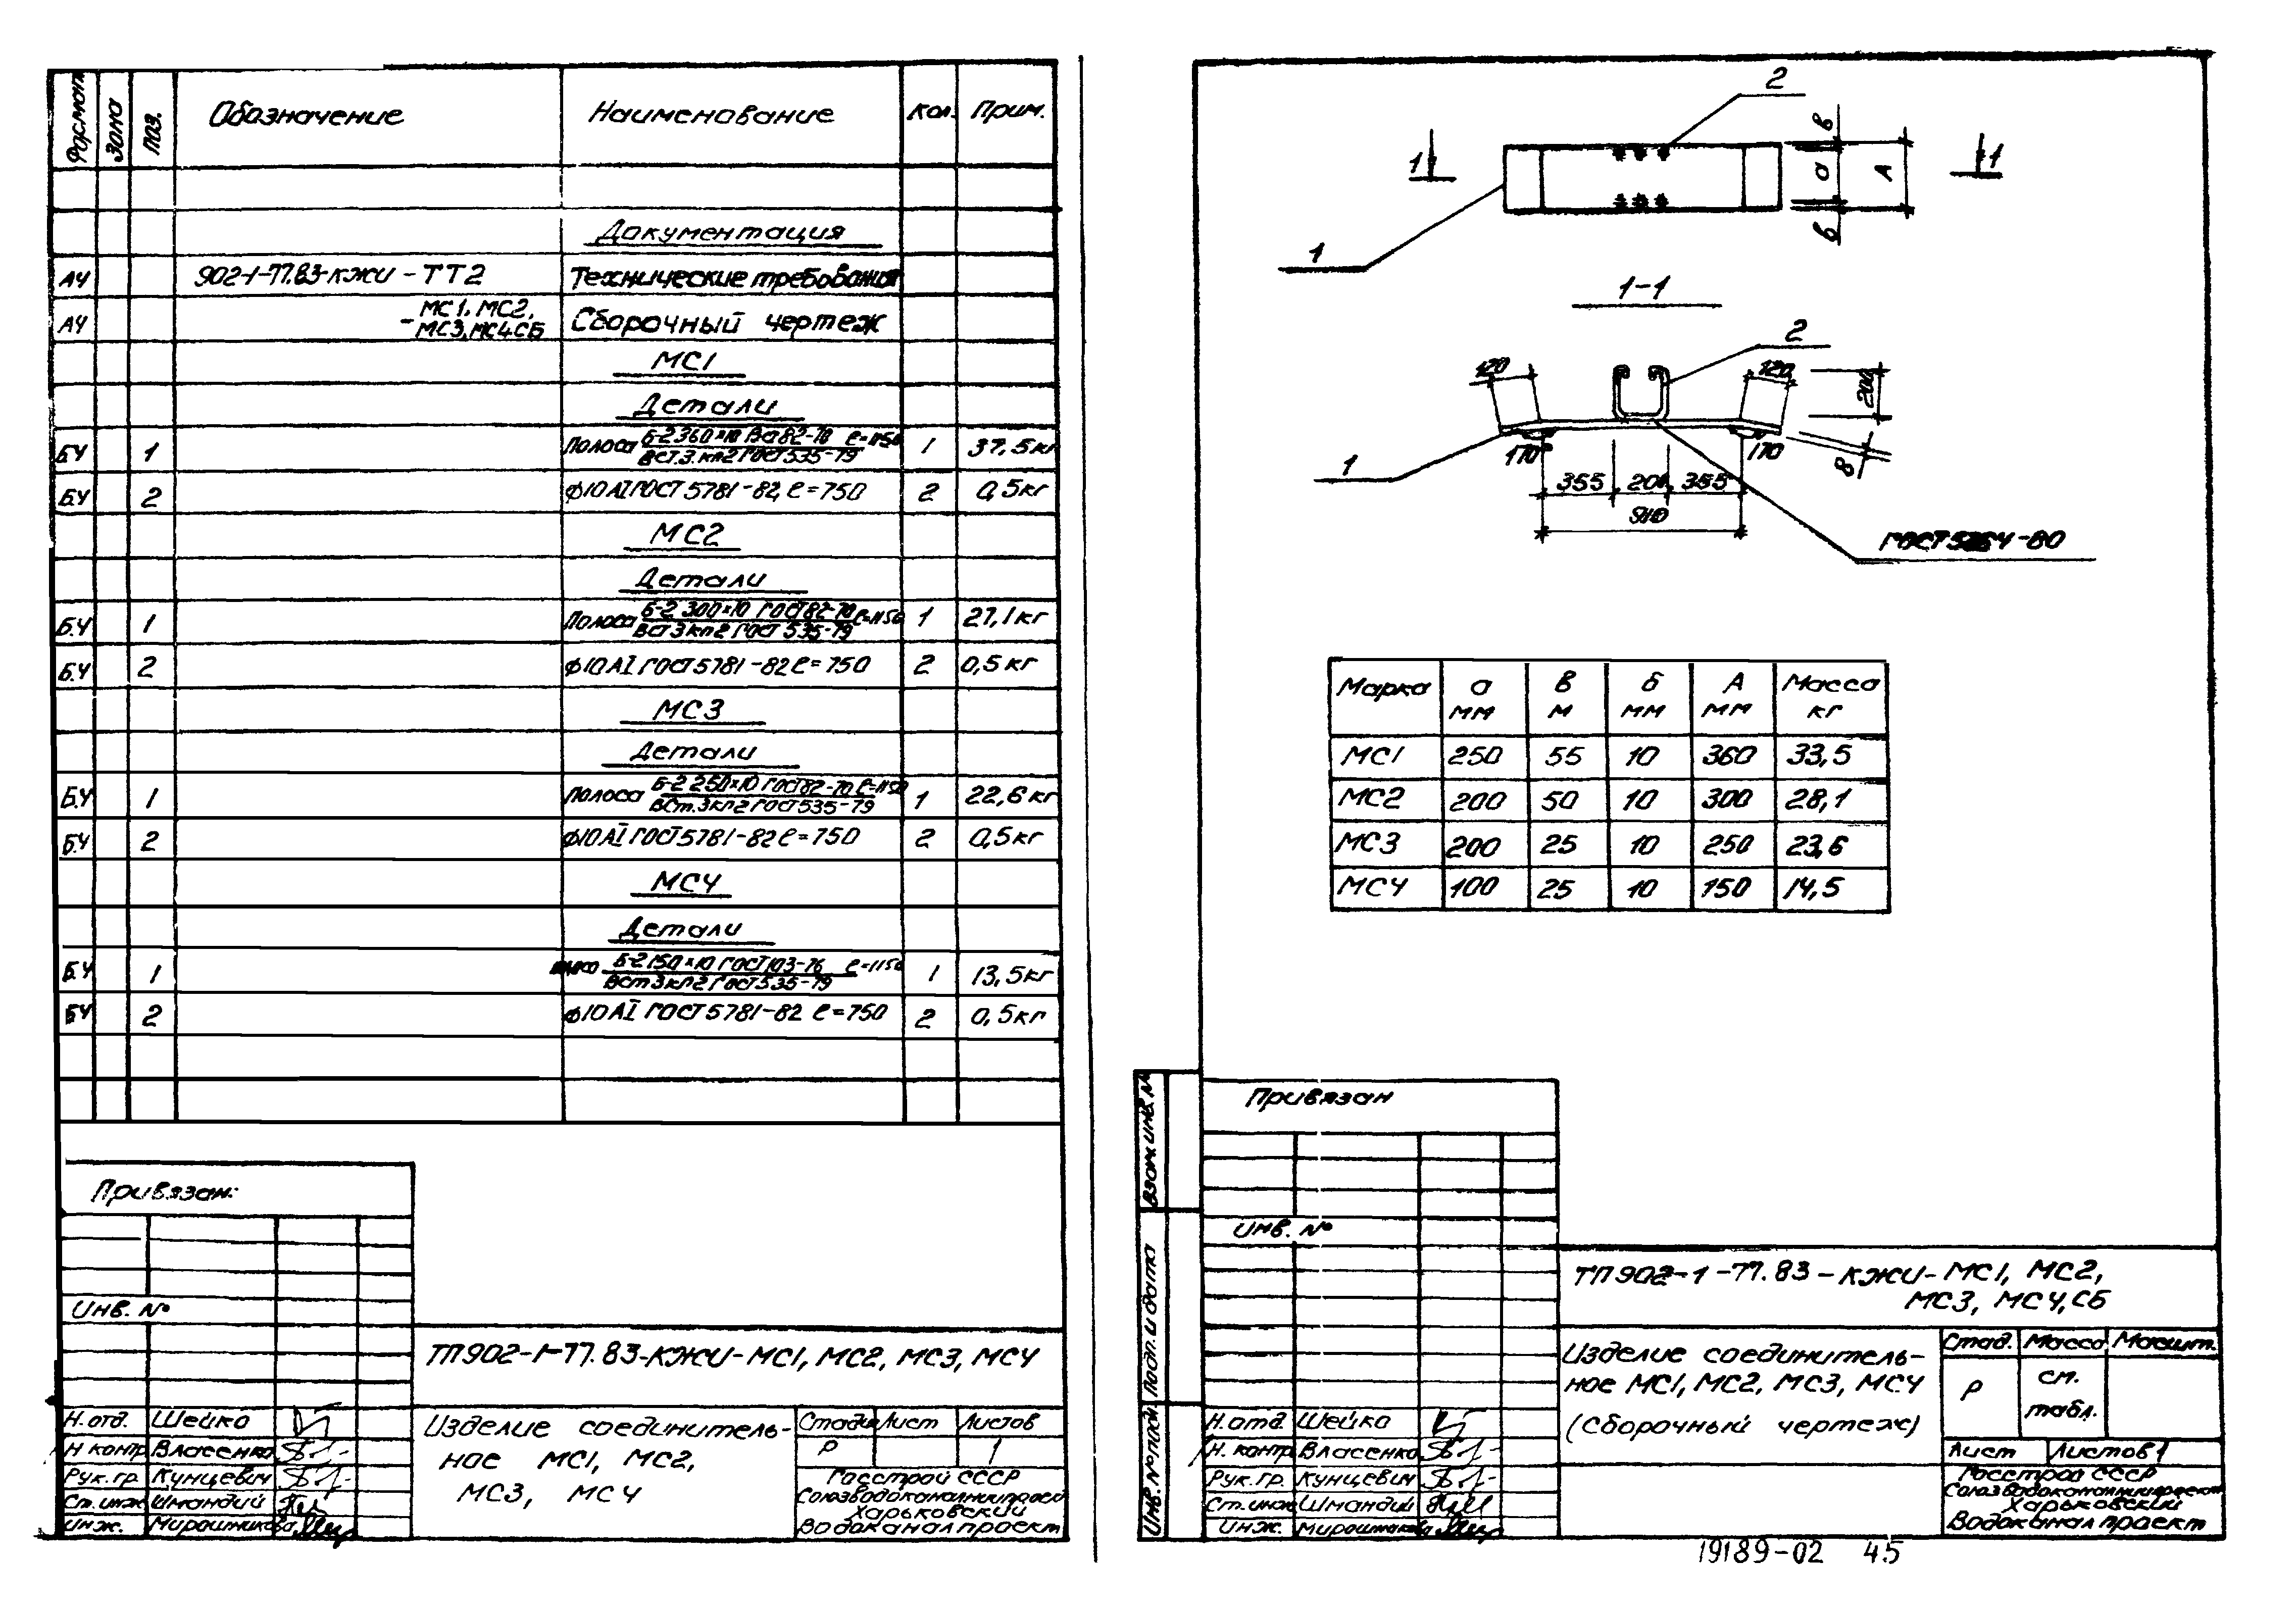 Формат Зона Поз. Обозначение Наименование Кол. Прим.
Документация
А4 902-1-77.83-КЖИ - ТТ2 Технические требования
А4 - МС1, МС2, МС3, МС4.СБ Сборочный чертеж
МС1
Детали
Б4 1 Полоса Б-2 360×10 82-70 ℓ=1150 1 37,5кг
ВСт.3.кп2 ГОСТ 535-79
Б4 2 ф10АI ГОСТ 5781-82, ℓ=750 2 0,5кг
МС2
Детали
Б.4 1 Полоса Б-2 300×10 ГОСТ 82-70 ℓ=1150 1 27,1кг
ВСт3кп2 ГОСТ 535-79
Б.4 2 ф10АI ГОСТ 5781-82 ℓ=750 2 0,5кг
МС3
Детали
Б.4 1 Полоса Б-2 250×10 ГОСТ 82-70 ℓ=1150 1 22,6кг
ВСт.3кп2 ГОСТ 535-79
Б.4 2 ф10АI ГОСТ 5781-82 ℓ=750 2 0,5кг
МС4
Детали
Б.4 1 Б-2 150×10 ГОСТ 103-76 ℓ=1150 1 13,5кг
ВСт3кп2 ГОСТ 535-79
Б4 2 ф10АI ГОСТ 5781-82 ℓ=750 2 0,5кг
Привязан:
Инв. №
ТП902-1-77.83-КЖИ-МС1, МС2, МС3, МС4
Н.отд. Шейко
Н контр Власенко
Рук.гр. Кунцевич
Ст.инж Шмандий
Инж. Мирошникова
Изделие соединитель-
ное МС1, МС2,
МС3, МС4
Стадия Лист Листов
Р 1
Госстрой СССР
Союзводоканалниипроект
Харьковский
Водоканалпроект
2
1 1
в
а А
в
1
1-1
2
120 120
200
1
170 170
8
355 200 355
910
ГОСТ 5264-80
Марка а мм в м б мм А мм Масса кг
МС1 250 55 10 360 33,5
МС2 200 50 10 300 28,1
МС3 200 25 10 250 23,6
МС4 100 25 10 150 14,5
Взам инв №
Подп. и дата
Инв. № подл.
Привязан
Инв. №
ТП902-1-77.83-КЖИ-МС1, МС2,
МС3, МС4,СБ
Н.отд. Шейко
Н. контр Власенко
Рук.гр. Кунцевич
Ст.инж Шмандий
Инж. Мирошникова
Изделие соединитель-
ное МС1, МС2, МС3, МС4
(Сборочный чертеж)
Стад. Масса Масшт.
Р см. табл.
Лист Листов 1
Госстрой СССР
Союзводоканалниипроект
Харьковский
Водоканалпроект
19189-02 45